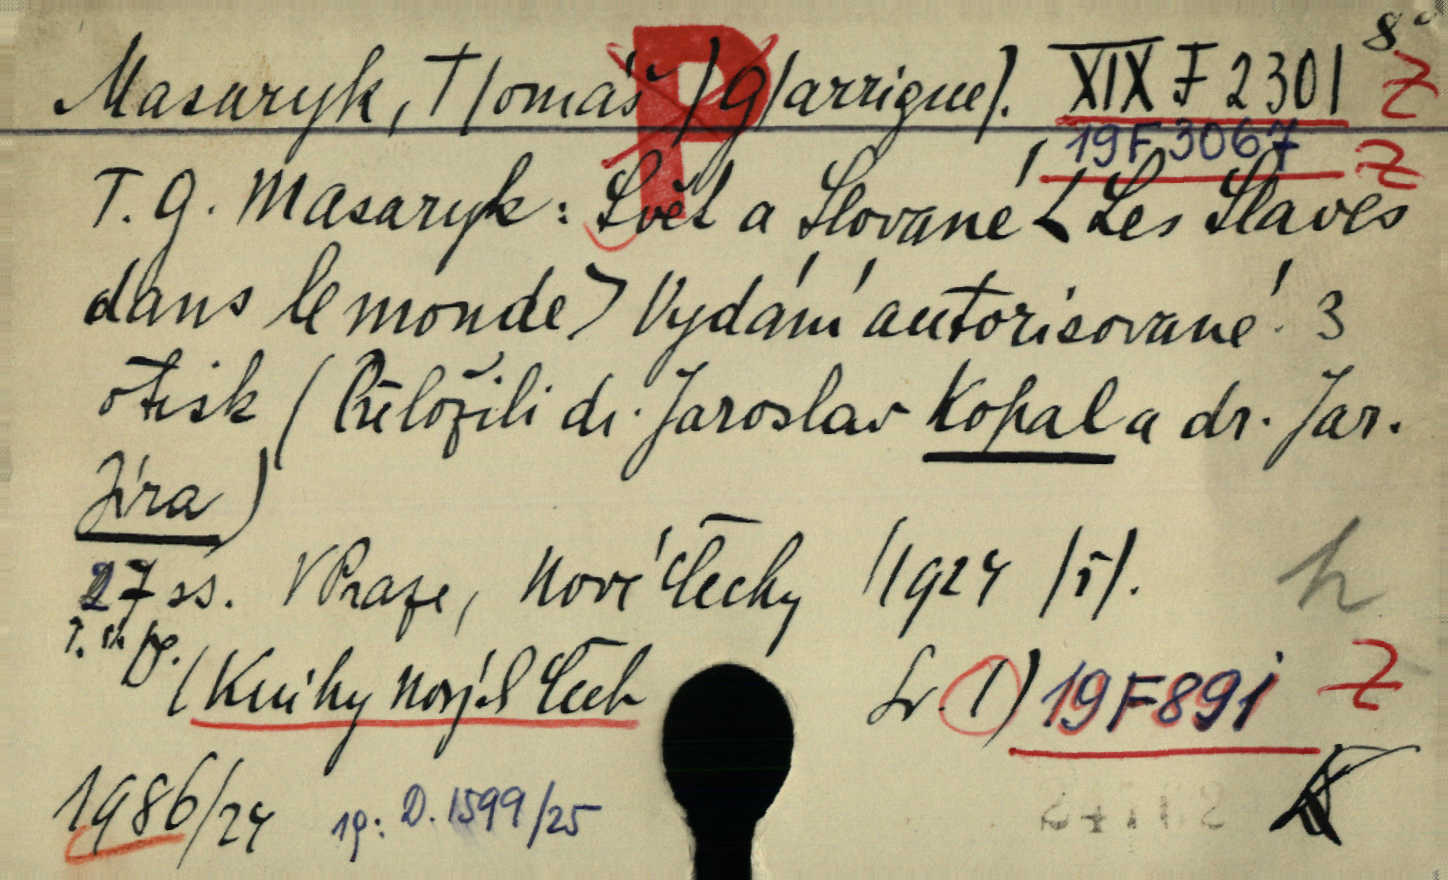 8°
Masaryk, T/omáš /G/arrigue/. XIX F 2301 Z
P
19F3067 Z
T. G. Masaryk: Svět a Slované <Les Slaves
dans le monde> Vydání autorisované. 3
otisk (Přeložili dr. Jaroslav Kopal a dr. Jar.
Jíra)
27 ss. V Praze, Nové Čechy /1924 /5/. h
(Knihy Nových Čech Sv. 1) 19F891 Z
1986/24 1p: D. 1599/25